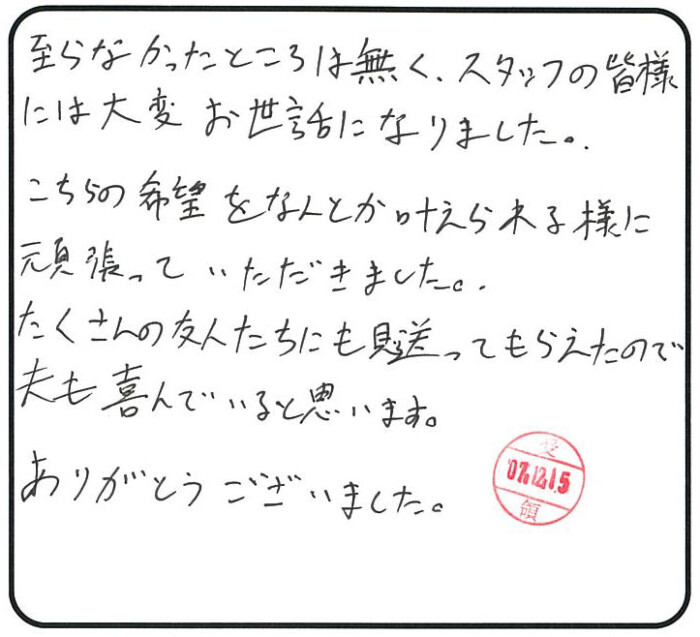 至らなかったところは無く、スタッフの皆様
には大変お世話になりました。
こちらの希望をなんとか叶えられる様に
頑張っていただきました。
たくさんの友人たちにも見送ってもらえたので
夫も喜んでいると思います。
ありがとうございました。
受
'07.12.1.5
領